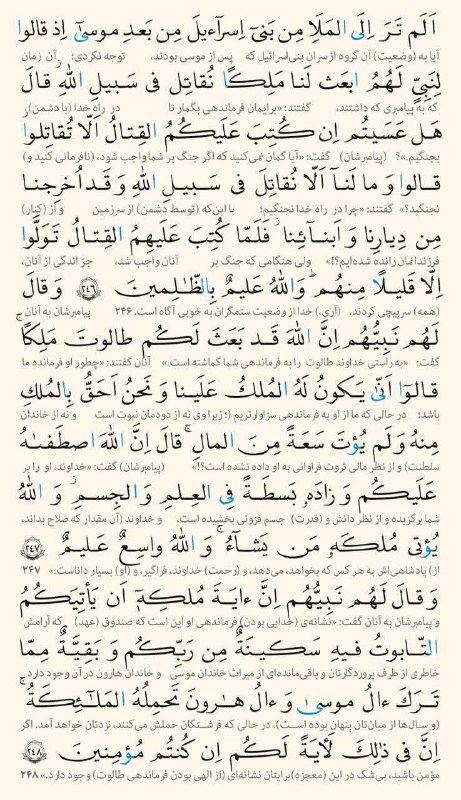 اَلَم تَرَ اِلَی المَلَاِ مِن بَنیٓ اِسرآءیلَ مِن بَعدِ موسیٰٓ اِذ قالوا
آیا به (وضعیت) آن گروه از سران بنی‌اسرائیل که پس از موسی بودند، توجه نکردی؛ آن زمان
لِنَبِیٍّ لَهُمُ ابعَث لَنا مَلِکًا نُقاتِل فی سَبیلِ اللهِ قالَ
که به پیامبری که داشتند، گفتند: «برایمان فرماندهی بگمار تا در راه خدا (با دشمن)،
هَل عَسَیتُم اِن کُتِبَ عَلَیکُمُ القِتالُ اَلّا تُقاتِلوا
بجنگیم.»؟ (پیامبرشان) گفت: «آیا گمان نمی‌کنید که اگر جنگ بر شما واجب شود، (نافرمانی کنید و)
قالوا وَ ما لَنآ اَلّا نُقاتِلَ فی سَبیلِ اللهِ وَ قَد اُخرِجنا
نجنگید؟» گفتند: «چرا در راه خدا نجنگیم؛ با این‌که (توسط دشمن) از سرزمین و از (کنار)
مِن دِیارِنا وَ اَبنآئِنا ۖ فَلَمّا کُتِبَ عَلَیهِمُ القِتالُ تَوَلَّوا
فرزندانمان رانده شده‌ایم؟!» ولی هنگامی که جنگ بر آنان واجب شد، جز اندکی از آنان،
اِلّا قَلیلًا مِنهُم ۗ وَاللهُ عَلیمٌ بِالظّالِمینَ ﴿۲۴۶﴾ وَ قالَ
(همه) سرپیچی کردند. (آری،) خدا از وضعیت ستمگران به خوبی آگاه است. ۲۴۶ پیامبرشان به آنان
لَهُم نَبِیُّهُم اِنَّ اللهَ قَد بَعَثَ لَکُم طالوتَ مَلِکًا ۚ
گفت: «به راستی خداوند طالوت را به فرماندهی شما گماشته است.» آنان گفتند: «چطور او فرمانده ما
قالوٓا اَنّیٰ یَکونُ لَهُ المُلکُ عَلَینا وَ نَحنُ اَحَقُّ بِالمُلکِ
باشد؛ در حالی که ما از او به فرماندهی سزاوارتریم (؛ زیرا وی نه از دودمان نبوت است و نه از خاندان
مِنهُ وَ لَم یُؤتَ سَعَةً مِنَ المالِ ۚ قالَ اِنَّ اللهَ اصطَفاهُ
سلطنت) و از نظر مالی ثروت فراوانی به او داده نشده است؟!» (پیامبرشان) گفت: «خداوند، او را بر
عَلَیکُم وَ زادَهُ بَسطَةً فِی العِلمِ وَ الجِسمِ ۖ وَ اللهُ
شما برگزیده و از نظر دانش و (قدرت) جسم فزونی بخشیده است. و خداوند (آن مقدار که صلاح بداند،
یُؤتی مُلکَهُ مَن یَشآءُ ۚ وَ اللهُ واسِعٌ عَلیمٌ ﴿۲۴۷﴾
از) پادشاهی‌اش به هر کس که بخواهد، می‌دهد، و (رحمت) خداوند، فراگیر، و (او) بسیار داناست.» ۲۴۷
وَ قالَ لَهُم نَبِیُّهُم اِنَّ ءایَةَ مُلکِهِ اَن یَأتِیَکُمُ
و پیامبرشان به آنان گفت: «نشانه‌ی (خدایی بودن) فرماندهی او این است که صندوق (عهد) که آرامش
التّابوتُ فیهِ سَکینَةٌ مِن رَبِّکُم وَ بَقِیَّةٌ مِمّا
خاطری از طرف پروردگارتان و باقی‌مانده‌ای از میراث خاندان موسی و خاندان هارون در آن وجود دارد
تَرَکَ ءالُ موسیٰ وَ ءالُ هارونَ تَحمِلُهُ المَلٰٓئِکَةُ ۚ
(و سال‌ها از میان‌تان پنهان بوده است)، در حالی که فرشتگان حملش می‌کنند، نزدتان خواهد آمد. اگر
اِنَّ فی ذٰلِکَ لَأیَةً لَکُم اِن کُنتُم مُؤمِنینَ ﴿۲۴۸﴾
مؤمن باشید، بی‌شک در این (معجزه) برایتان نشانه‌ای (از الهی بودن فرماندهی طالوت) وجود دارد.» ۲۴۸